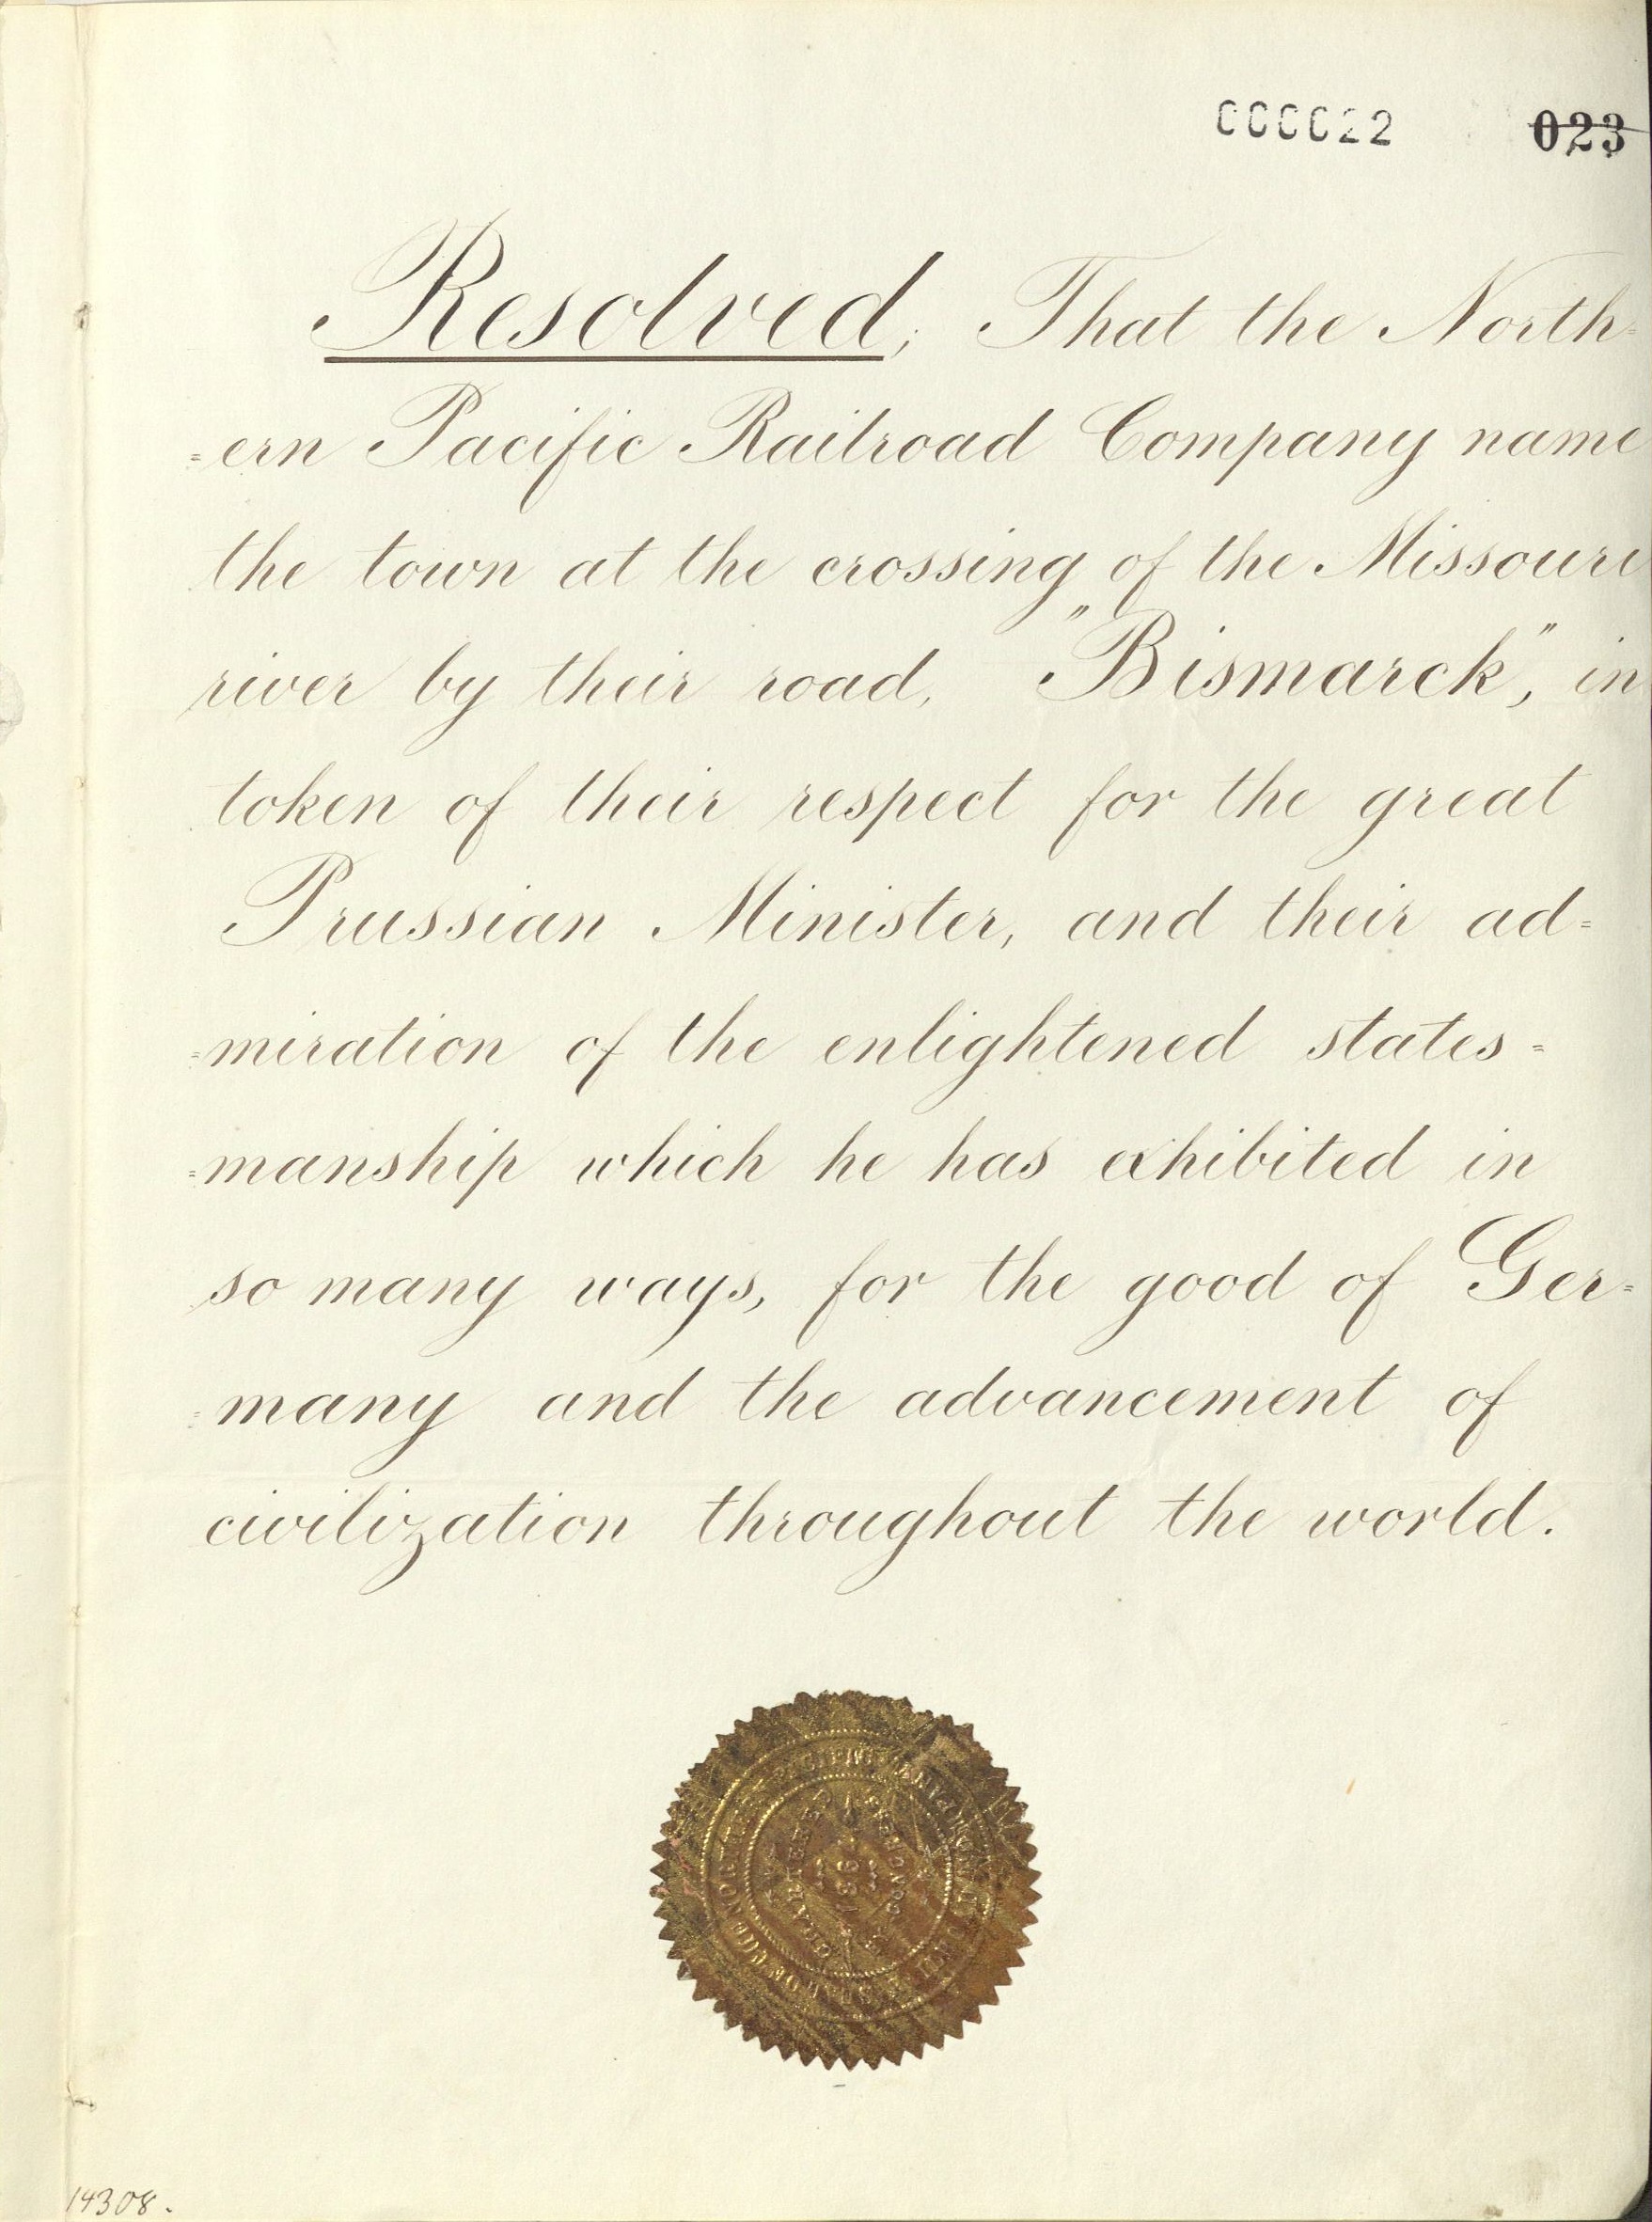 000022 023
Resolved, That the North=
=ern Pacific Railroad Company name
the town at the crossing of the Missouri
river by their road, "Bismarck," in
token of their respect for the great
Prussian Minister, and their ad=
=miration of the enlightened states=
=manship which he has exhibited in
so many ways, for the good of Ger=
=many and the advancement of
civilization throughout the world.
SEAL OF THE NORTHERN PACIFIC RAILROAD COMPANY
CHARTERED BY CONGRESS
1864
14308.